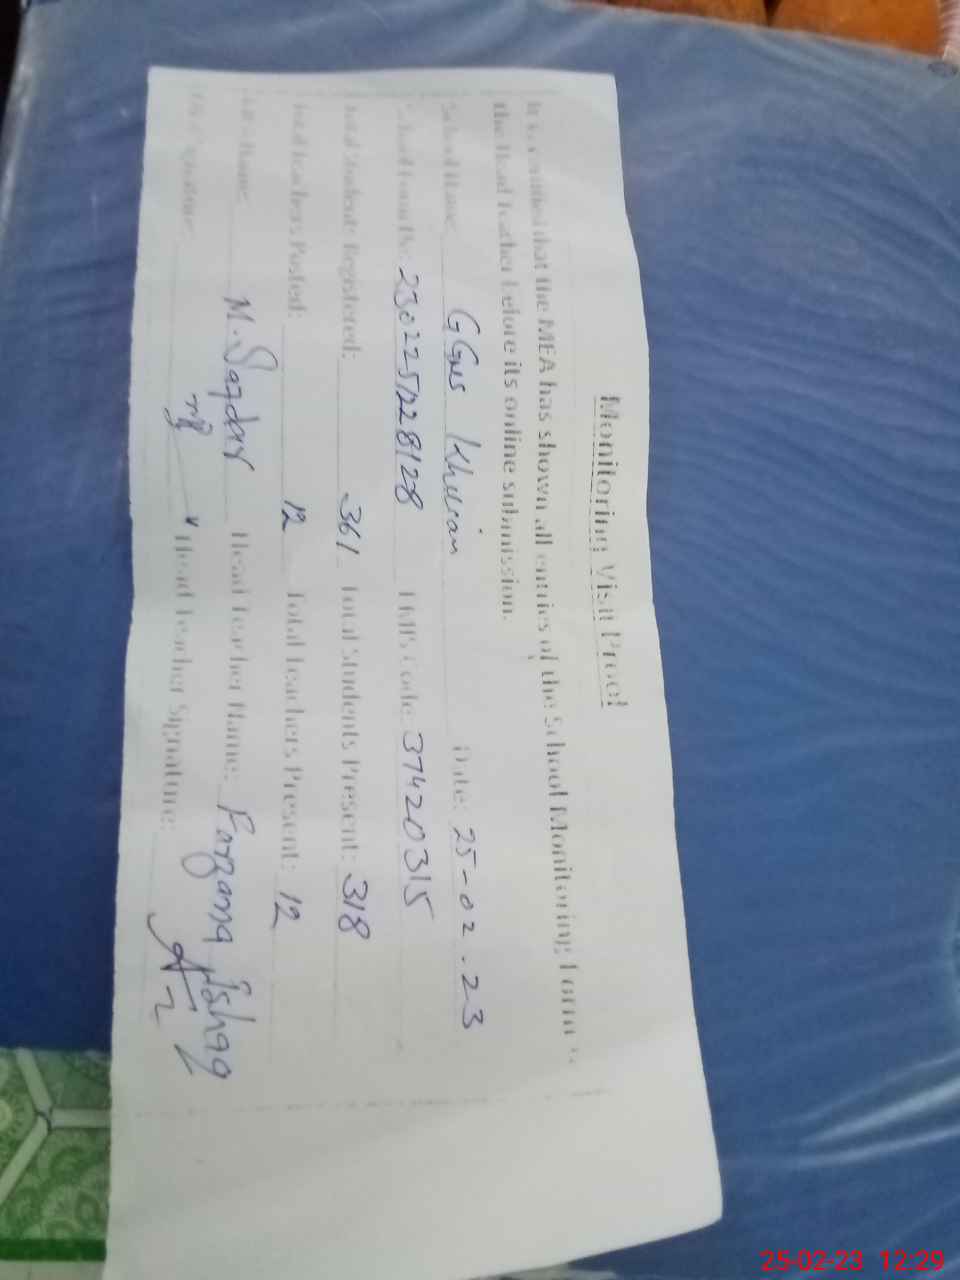 Monitoring Visit Proof
It is certified that the MEA has shown all entries of the School Monitoring Form to
the Head Teacher before its online submission.
School Name: GGHS Date: 25-02-23
EMIS Code: 37420315
Total Students Registered: 361 Total Students Present: 318
Total Teachers Posted: 12 Total Teachers Present: 12
MEA Name: M. Safdar Head Teacher Name: Farzana Ishaq
MEA Signature: Head Teacher Signature:
25-02-23 12:29